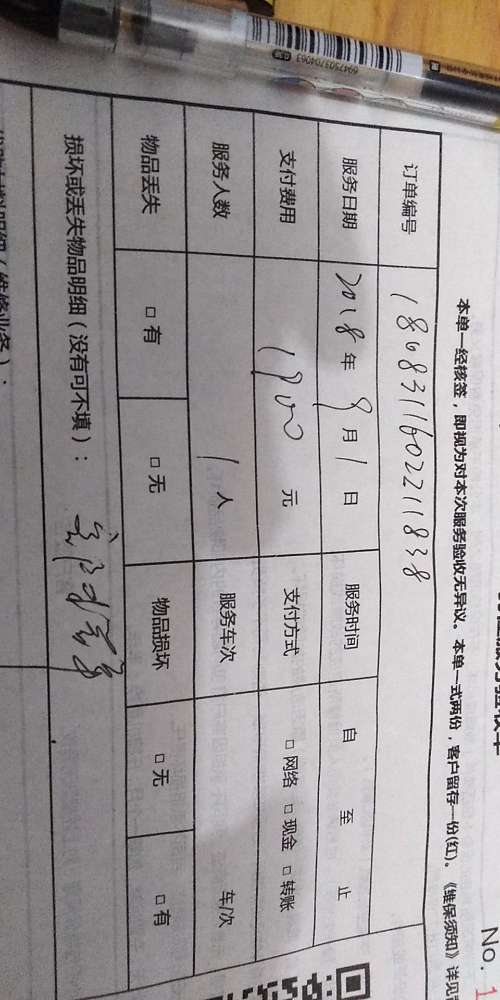 6947503704063
No. 1
本单一经核签，即视为对本次服务验收无异议。本单一式两份，客户留存一份(红)。《维保须知》详见
订单编号 1808311602211838
服务日期 2018 年 9 月 1 日 服务时间 自 至 止
支付费用 元 支付方式 □ 网络 □ 现金 □ 转账
服务人数 1 人 服务车次 车/次
物品丢失 □ 有 □ 无 物品损坏 □ 无 □ 有
损坏或丢失物品明细（没有可不填）：